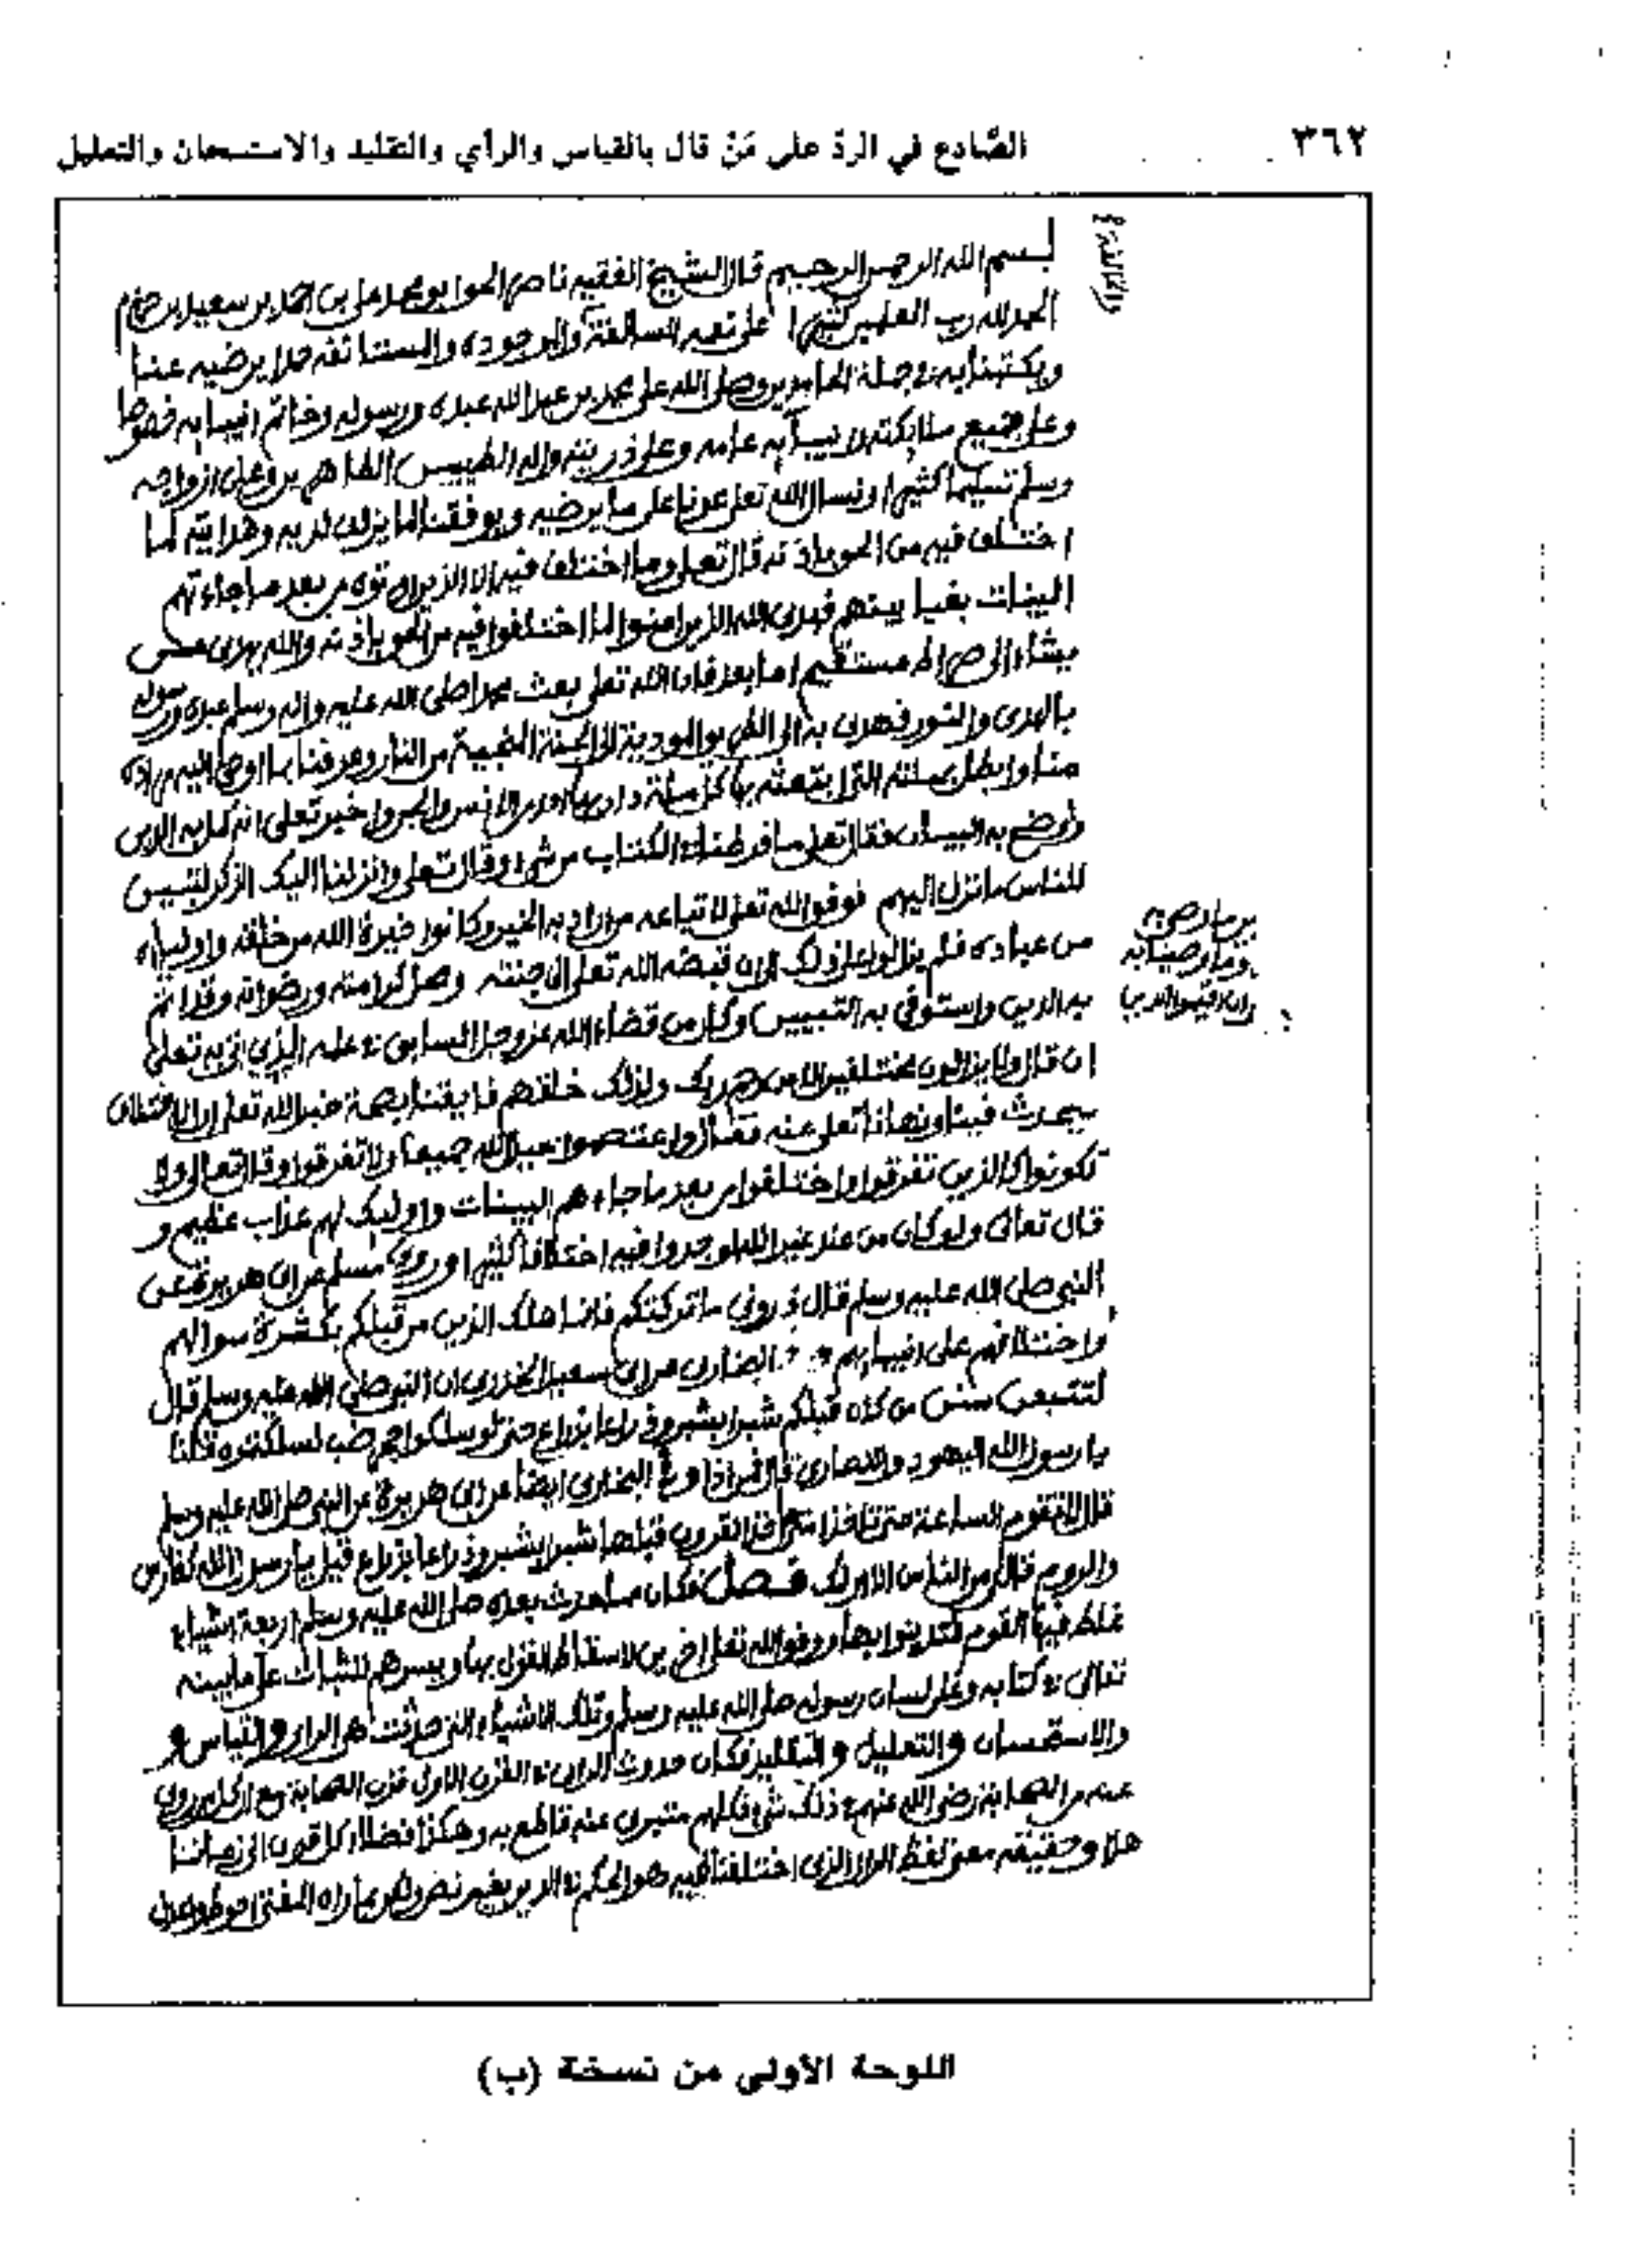 ٣٦٢
الصَّادع في الردّ على مَنْ قال بالقياس والرأي والتقليد والاستحسان والتعليل
بسم الله الرحمن الرحيم قال الشيخ الفقيه ناصر الحق ابو محمد علي بن احمد بن سعيد بن حزم
الحمد لله رب العلمين كثيرا على نعمه السالفة والموجودة والمستانفة حمدا يرضيه عنا
ويكتبنا به في جملة الحامدين وصلى الله على محمد بن عبد الله عبده ورسوله وخاتم انبيايه خصوصا
وعلى جميع ملايكته و انبيايه عامة وعلى ذريته واله الطيبين الطاهرين وعلى ازواجه
وسلم تسليما كثيرا ونسال الله تعلى عونا على ما يرضيه ويوفقنا لما يزلف لديه وهدايته لما
اختلف فيه من الحق باذنه قال تعلى وما اختلف فيه الا الذين اوتوه من بعد ما جاءتهم
البينات بغيا بينهم فهدى الله الذين امنوا لما اختلفوا فيه من الحق باذنه والله يهدي من
يشاء الى صراط مستقيم اما بعد فان الله تعلى بعث محمدا صلى الله عليه واله وسلم عبده ورسوله
بالهدى والنور فهدى به الى المودية الى الجنة المنجية من النار وعرفنا بما اوحى اليه مراده
منا وابطل بملته التي ابتعثه بها كل ملة دان بها احد من الانس والجن واخبر تعلى انه كمل به الدين
واوضح به البيان فقال تعلى ما فرطنا في الكتاب من شيء وقال تعلى وانزلنا اليك الذكر لتبين
للناس ما نزل اليهم فوفق الله تعلى لاتباعه من اراد به الخير وكانوا خيرة الله من خلقه واولياه
من عباده فلم يزالوا على ذلك الى ان قبضه الله تعلى الى جنته ومحل كرامته ورضوانه وقد اتم
به الدين واستوفى به التبيين وكان من قضاء الله عز وجل السابق في علمه الذي اخبر به تعلى
ان قال ولا يزالون مختلفين الا من رحم ربك ولذلك خلقهم فايقنا بصحة خبر الله تعلى ان الاختلاف
سيحدث فينا ونهانا تعلى عنه فقال واعتصموا بحبل الله جميعا ولا تفرقوا وقال تعالى ولا
تكونوا كالذين تفرقوا واختلفوا من بعد ما جاءهم البينات واوليك لهم عذاب عظيم و
قال تعالى ولو كان من عند غير الله لوجدوا فيه اختلافا كثيرا وروى مسلم عن ابي هريرة عن
النبي صلى الله عليه وسلم قال ذروني ما تركتكم فانما هلك الذين من قبلكم بكثرة سوالهم
واختلافهم على انبيايهم البخاري عن ابي سعيد الخدري ان النبي صلى الله عليه وسلم قال
لتتبعن سنن من كان قبلكم شبرا بشبر وذراعا بذراع حتى لو سلكوا جحر ضب لسلكتموه قلنا
يا رسول الله اليهود والنصارى قال فمن اذا البخاري ايضا عن ابي هريرة عن النبي صلى الله عليه وسلم
قال لا تقوم الساعة حتى تاخذ امتي اخذ القرون قبلها شبرا بشبر وذراعا بذراع قيل يا رسول الله كفارس
والروم قال ومن الناس الا اوليك فصل فكان مما حدث بعده صلى الله عليه وسلم اربعة اشياء
غلط فيها القوم فتدينوا بها ووفق الله تعلى اخرين لاسقاط القول بها ويسرهم للثبات على ما بينه
تعالى في كتابه وعلى لسان رسوله صلى الله عليه وسلم وتلك الاشياء التي حدثت هي الراي والقياس و
والاستحسان والتعليل والتقليد فكان حدوث الراي في القرن الاول قرن الصحابة مع ان كل من روي
عنه من الصحابة رضي الله عنهم في ذلك شيء فكلهم متبري عنه قاطع به وهكذا افضلا كل قرن الى زماننا
هذا وحقيقة معنى لفظ الراي الذي اختلفنا فيه هو الحكم في الدين بغير نص ولكن بما راه المفتي احوط واعدل
اللوحة الأولى من نسخة (ب)